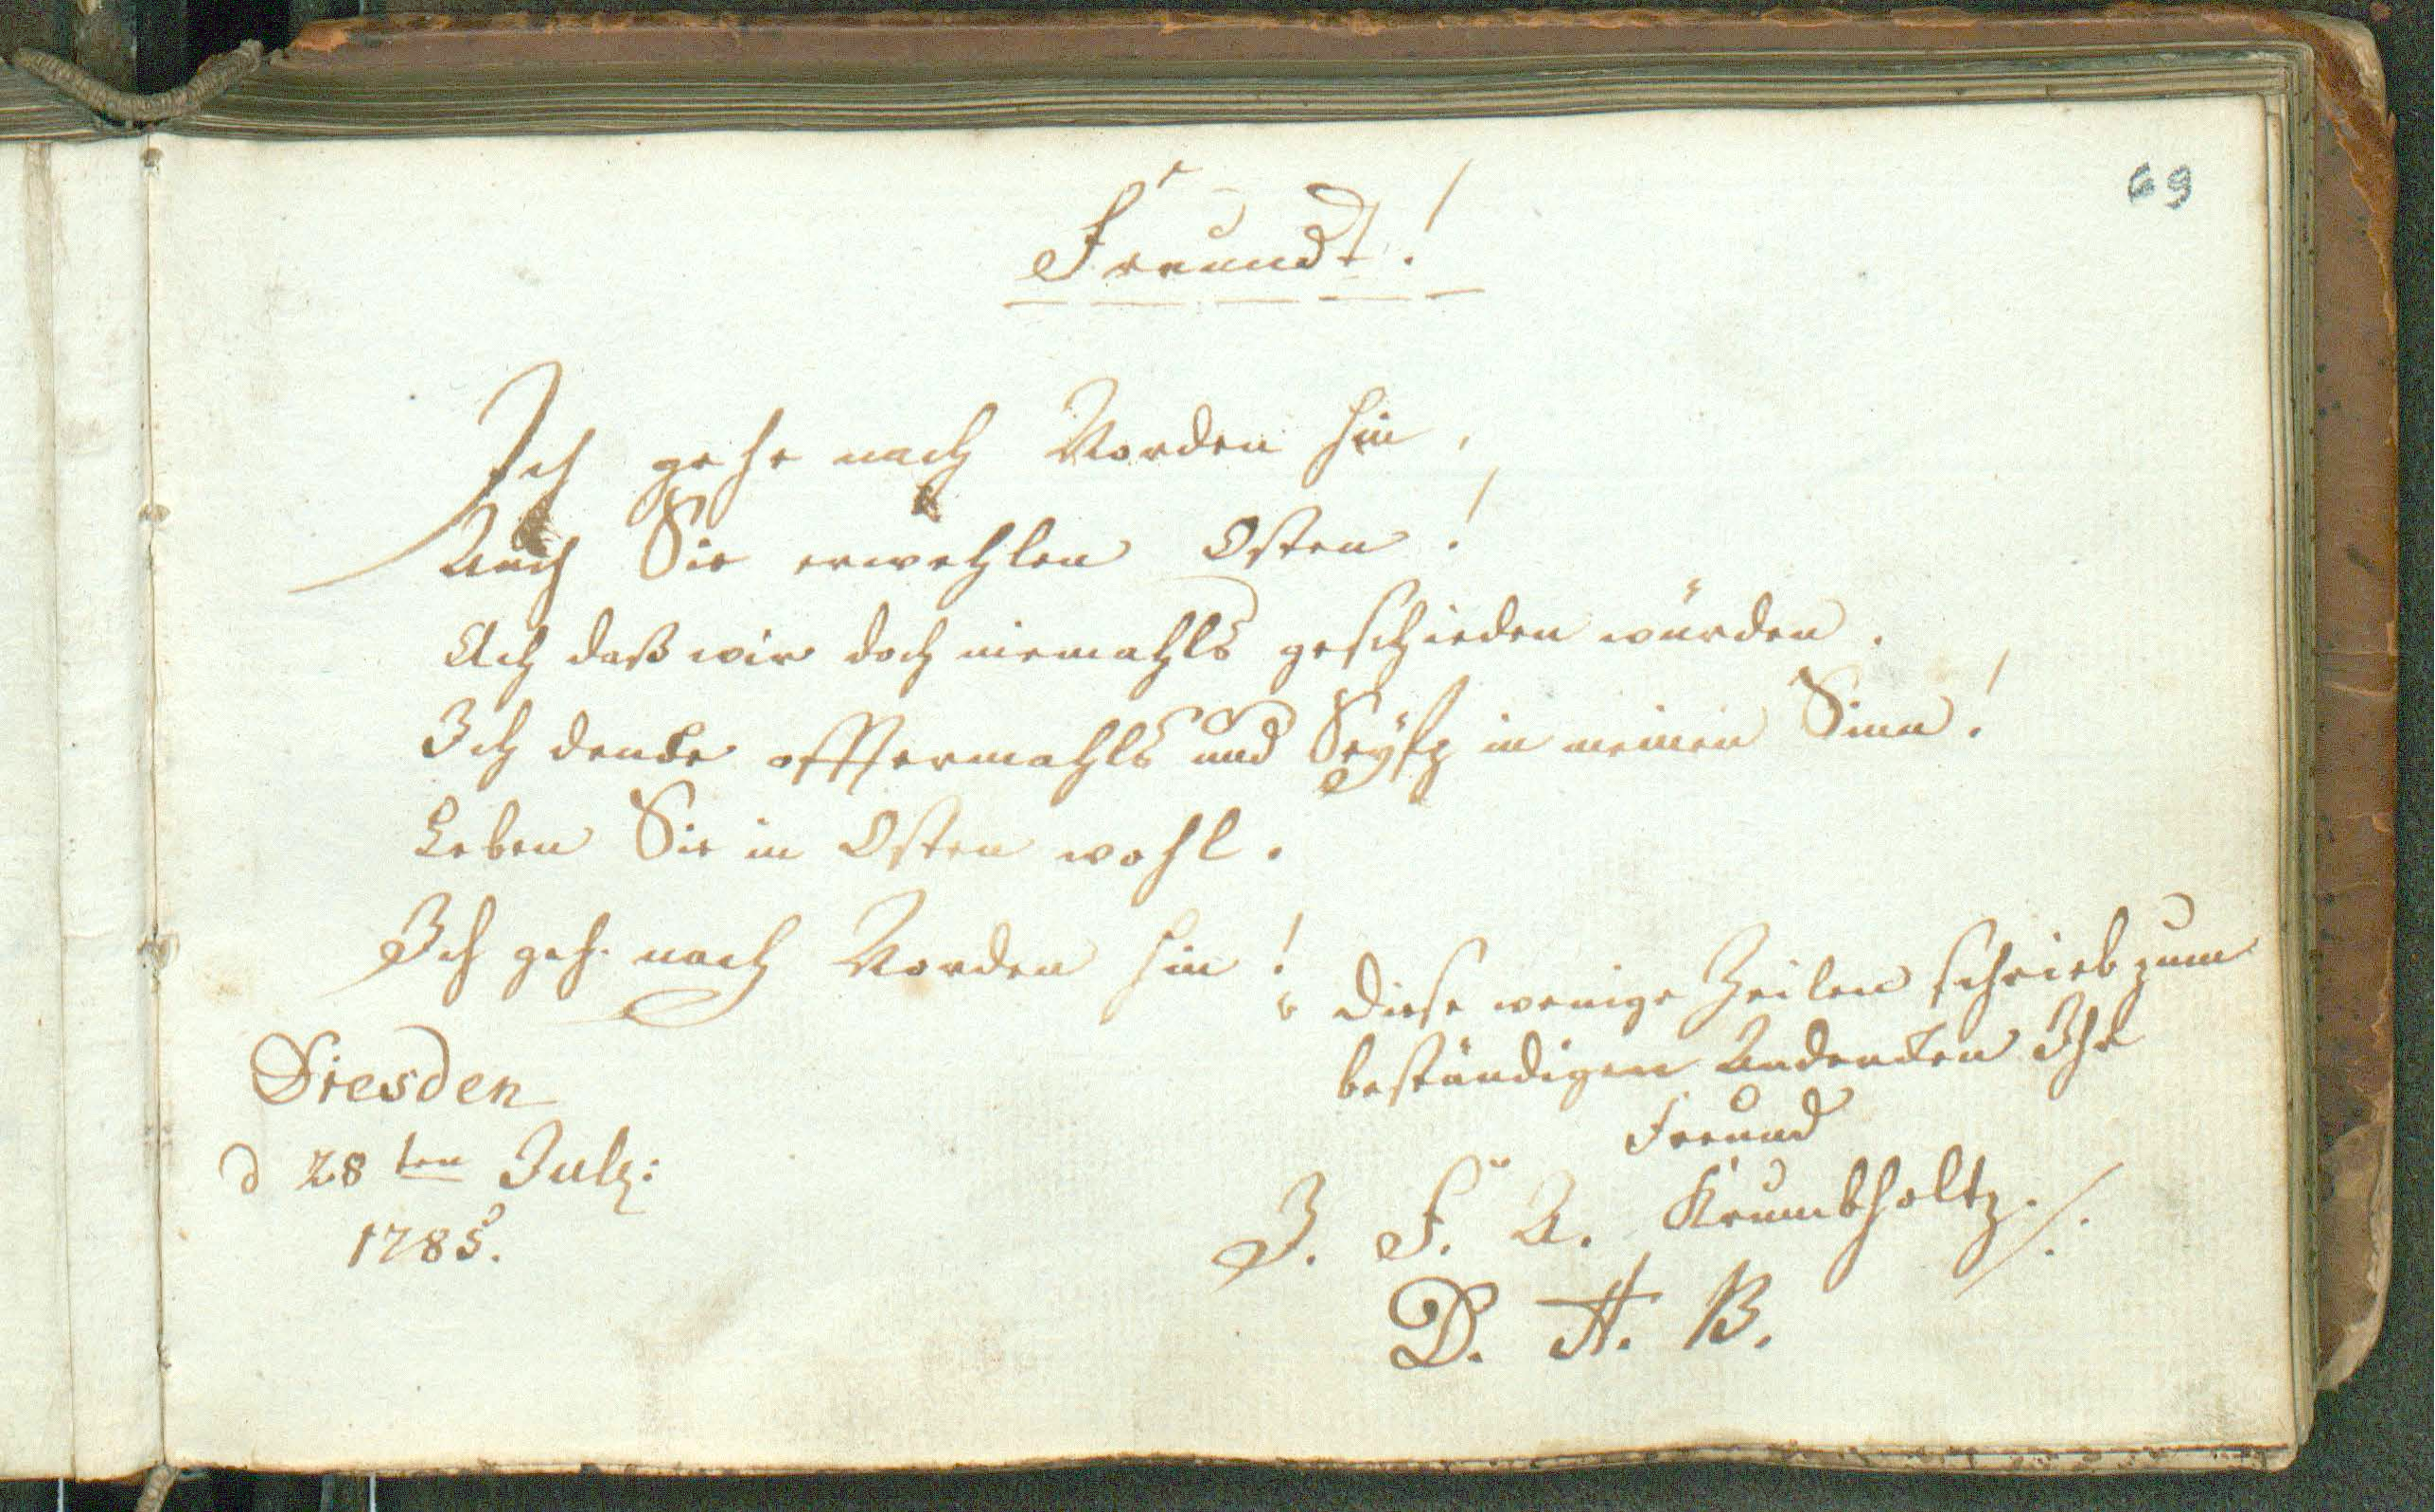 69
Freundt!
Ich gehe nach Norden hin,
Auch Sie erwehlen Osten!
Ach daß wir doch niemahls geschieden würden.
Ich denke offtermahls und Seüfz in meinen Sinn!
Leben Sie in Osten wohl.
Ich geh. nach Norden hin!
Diese wenige Zeilen schrieb zum
beständigen Andenken Ihr
Freund
J. F. A. Krumbholtz.
D. H. B.
Dresden
d 28 ten July:
1785.